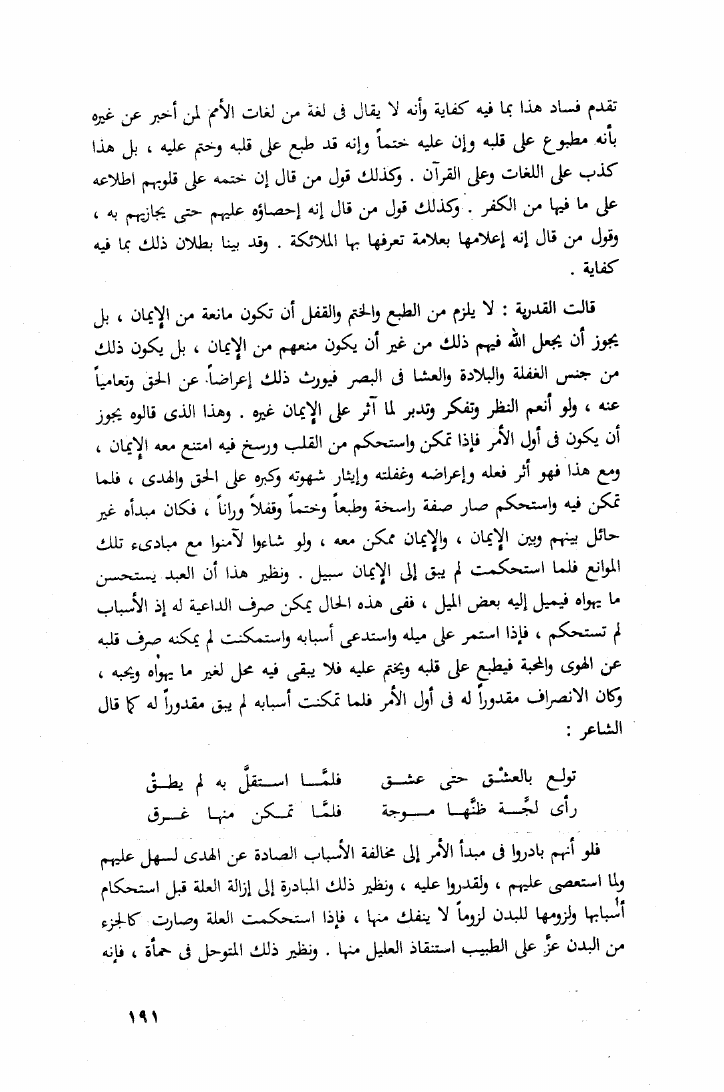 تقدم فساد هذا بما فيه كفاية وأنه لا يقال فى لغة من لغات الأمم لمن أخبر عن غيره
بأنه مطبوع على قلبه وإن عليه ختماً وإنه قد طبع على قلبه وختم عليه ، بل هذا
كذب على اللغات وعلى القرآن . وكذلك قول من قال إن ختمه على قلوبهم اطلاعه
على ما فيها من الكفر . وكذلك قول من قال إنه إحصاؤه عليهم حتى يجازيهم به ،
وقول من قال إنه إعلامها بعلامة تعرفها بها الملائكة . وقد بينا بطلان ذلك بما فيه
كفاية .
قالت القدرية : لا يلزم من الطبع والختم والقفل أن تكون مانعة من الإيمان ، بل
يجوز أن يجعل الله فيهم ذلك من غير أن يكون منعهم من الإيمان ، بل يكون ذلك
من جنس الغفلة والبلادة والعشا فى البصر فيورث ذلك إعراضاً عن الحق وتعامياً
عنه ، ولو أنعم النظر وتفكر وتدبر لما آثر على الإيمان غيره . وهذا الذى قالوه يجوز
أن يكون فى أول الأمر فإذا تمكن واستحكم من القلب ورسخ فيه امتنع معه الإيمان ،
ومع هذا فهو أثر فعله وإعراضه وغفلته وإيثار شهوته وكبره على الحق والهدى ، فلما
تمكن فيه واستحكم صار صفة راسخة وطبعاً وختماً وقفلاً وراناً ، فكان مبدأه غير
حائل بينهم وبين الإيمان ، والإيمان ممكن معه ، ولو شاءوا لآمنوا مع مبادىء تلك
الموانع فلما استحكمت لم يبق إلى الإيمان سبيل . ونظير هذا أن العبد يستحسن
ما يهواه فيميل إليه بعض الميل ، ففى هذه الحال يمكن صرف الداعية له إذ الأسباب
لم تستحكم ، فإذا استمر على ميله واستدعى أسبابه واستمكنت لم يمكنه صرف قلبه
عن الهوى والمحبة فيطبع على قلبه ويختم عليه فلا يبقى فيه محل لغير ما يهواه ويحبه ،
وكان الانصراف مقدوراً له فى أول الأمر فلما تمكنت أسبابه لم يبق مقدوراً له كما قال
الشاعر :
تولع بالعشْق حتى عشق فلمَّا استقلَّ به لم يطقْ
رأى لجَّة ظنَّها موجة فلمَّا تمكن منها غرق
فلو أنهم بادروا فى مبدأ الأمر إلى مخالفة الأسباب الصادة عن الهدى لسهل عليهم
ولما استعصى عليهم ، ولقدروا عليه ، ونظير ذلك المبادرة إلى إزالة العلة قبل استحكام
أسبابها ولزومها للبدن لزوماً لا ينفك منها ، فإذا استحكمت العلة وصارت كالجزء
من البدن عزَّ على الطبيب استنقاذ العليل منها . ونظير ذلك المتوحل فى حمأة ، فإنه
١٩١